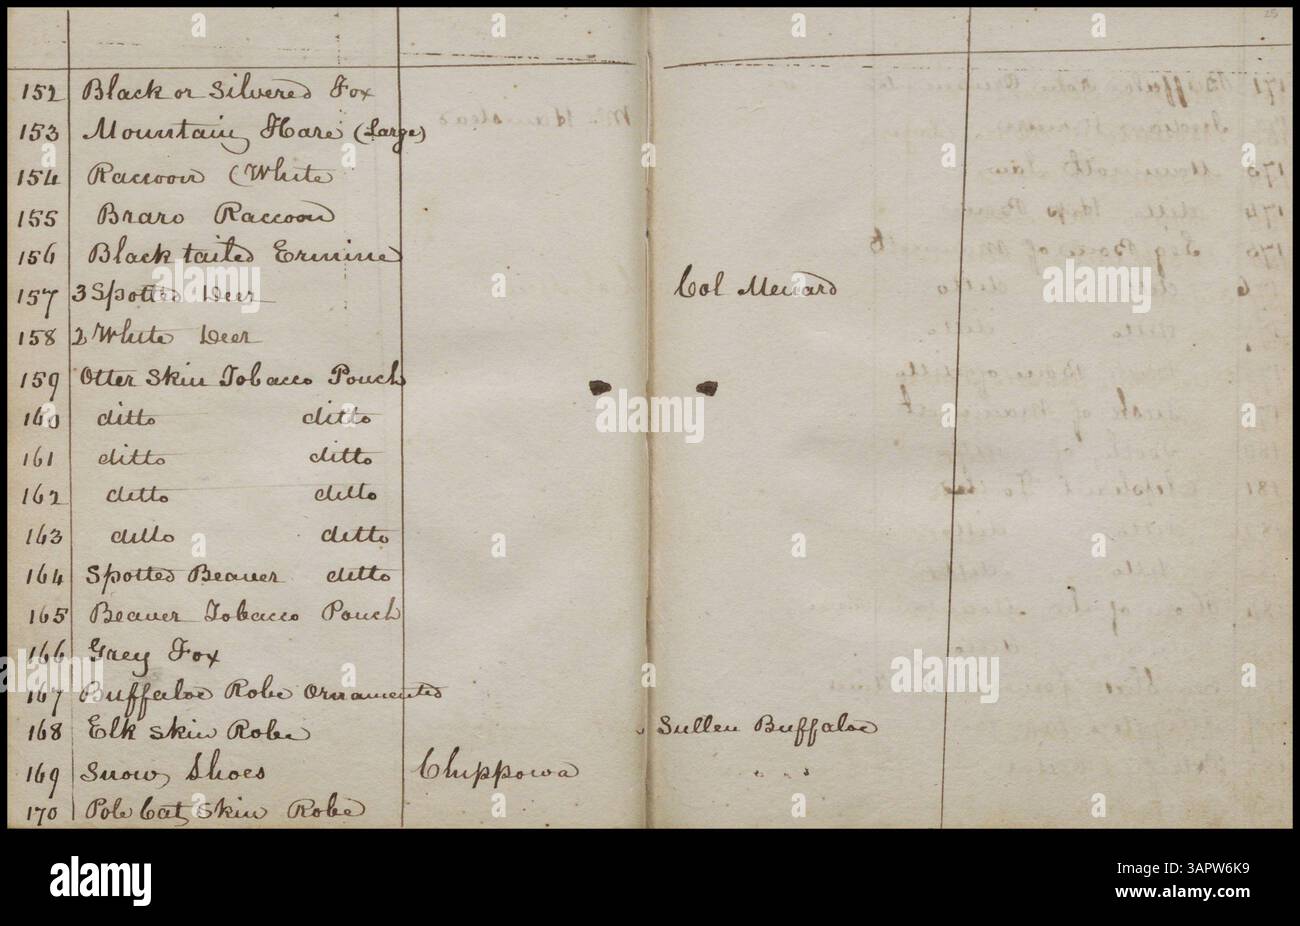 25
152 Black or Silvered Fox
153 Mountain Hare (Large)
154 Raccoon (White
155 Braro Raccoon
156 Black tailed Ermine
157 3 Spotted Deer Col Menard
158 2 White Deer
159 Otter Skin Tobacco Pouch
160 ditto ditto
161 ditto ditto
162 ditto ditto
163 ditto ditto
164 Spotted Beaver ditto
165 Beaver Tobacco Pouch
166 Grey Fox
167 Buffaloe Robe Ornamented
168 Elk skin Robe Sullen Buffaloe
169 Snow Shoes Chippowa " " "
170 Pole Cat skin Robe
alamy
Image ID: 3APW6K9
www.alamy.com